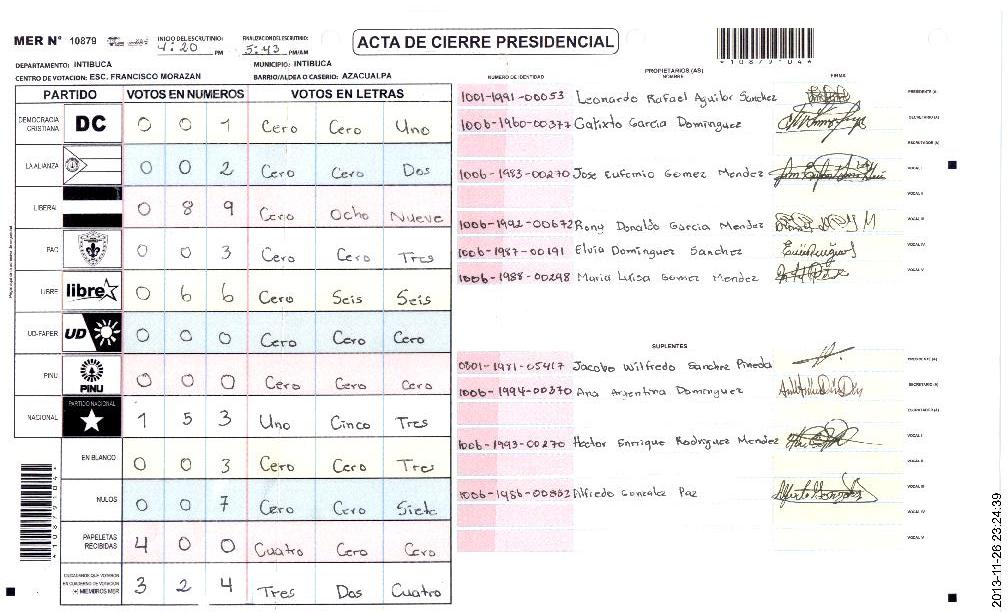 MER N° 10879 INICIO DEL ESCRUTINIO: 4:20 PM FINALIZACION ESCRUTINIO: 5:43 PM/AM
ACTA DE CIERRE PRESIDENCIAL
*10879104*
DEPARTAMENTO: INTIBUCA MUNICIPIO: INTIBUCA
CENTRO DE VOTACION: ESC. FRANCISCO MORAZAN BARRIO/ALDEA O CASERIO: AZACUALPA
PARTIDO VOTOS EN NUMEROS VOTOS EN LETRAS
DEMOCRACIA CRISTIANA DC 0 0 1 Cero Cero Uno
LA ALIANZA 0 0 2 Cero Cero Dos
LIBERAL 0 8 9 Cero Ocho Nueve
PAC 0 0 3 Cero Cero Tres
LIBRE libre 0 6 6 Cero Seis Seis
UD-FAPER UD 0 0 0 Cero Cero Cero
PINU PINU 0 0 0 Cero Cero Cero
NACIONAL PARTIDO NACIONAL 1 5 3 Uno Cinco Tres
EN BLANCO 0 0 3 Cero Cero Tres
NULOS 0 0 7 Cero Cero Siete
PAPELETAS RECIBIDAS 4 0 0 Cuatro Cero Cero
CIUDADANOS QUE VOTARON EN CUADERNO DE VOTACION (+) MIEMBROS MER 3 2 4 Tres Dos Cuatro
*10879104*
NUMERO DE IDENTIDAD PROPIETARIOS (AS) NOMBRE FIRMA
1001-1991-00053 Leonardo Rafael Aguilar Sanchez PRESIDENTE (A)
1006-1960-00377 Calixto Garcia Dominguez SECRETARIO (A)
ESCRUTADOR (A)
1006-1983-00270 Jose Eufemio Gomez Mendez VOCAL I
VOCAL II
1006-1992-00672 Rony Donaldo Garcia Mendez VOCAL III
1006-1987-00191 Elvia Dominguez Sanchez VOCAL IV
1006-1988-00298 Maria Luisa Gomez Mendez VOCAL V
SUPLENTES
0801-1981-05417 Jacobo Wilfredo Sanchez Pineda PRESIDENTE (A)
1006-1994-00370 Ana Argentina Dominguez SECRETARIO (A)
ESCRUTADOR (A)
1006-1993-00270 Hector Enrrique Rodriguez Mendez VOCAL I
VOCAL II
1006-1986-00802 Alfredo Gonzalez Paz VOCAL III
VOCAL IV
VOCAL V
2013-11-26 23:24:39